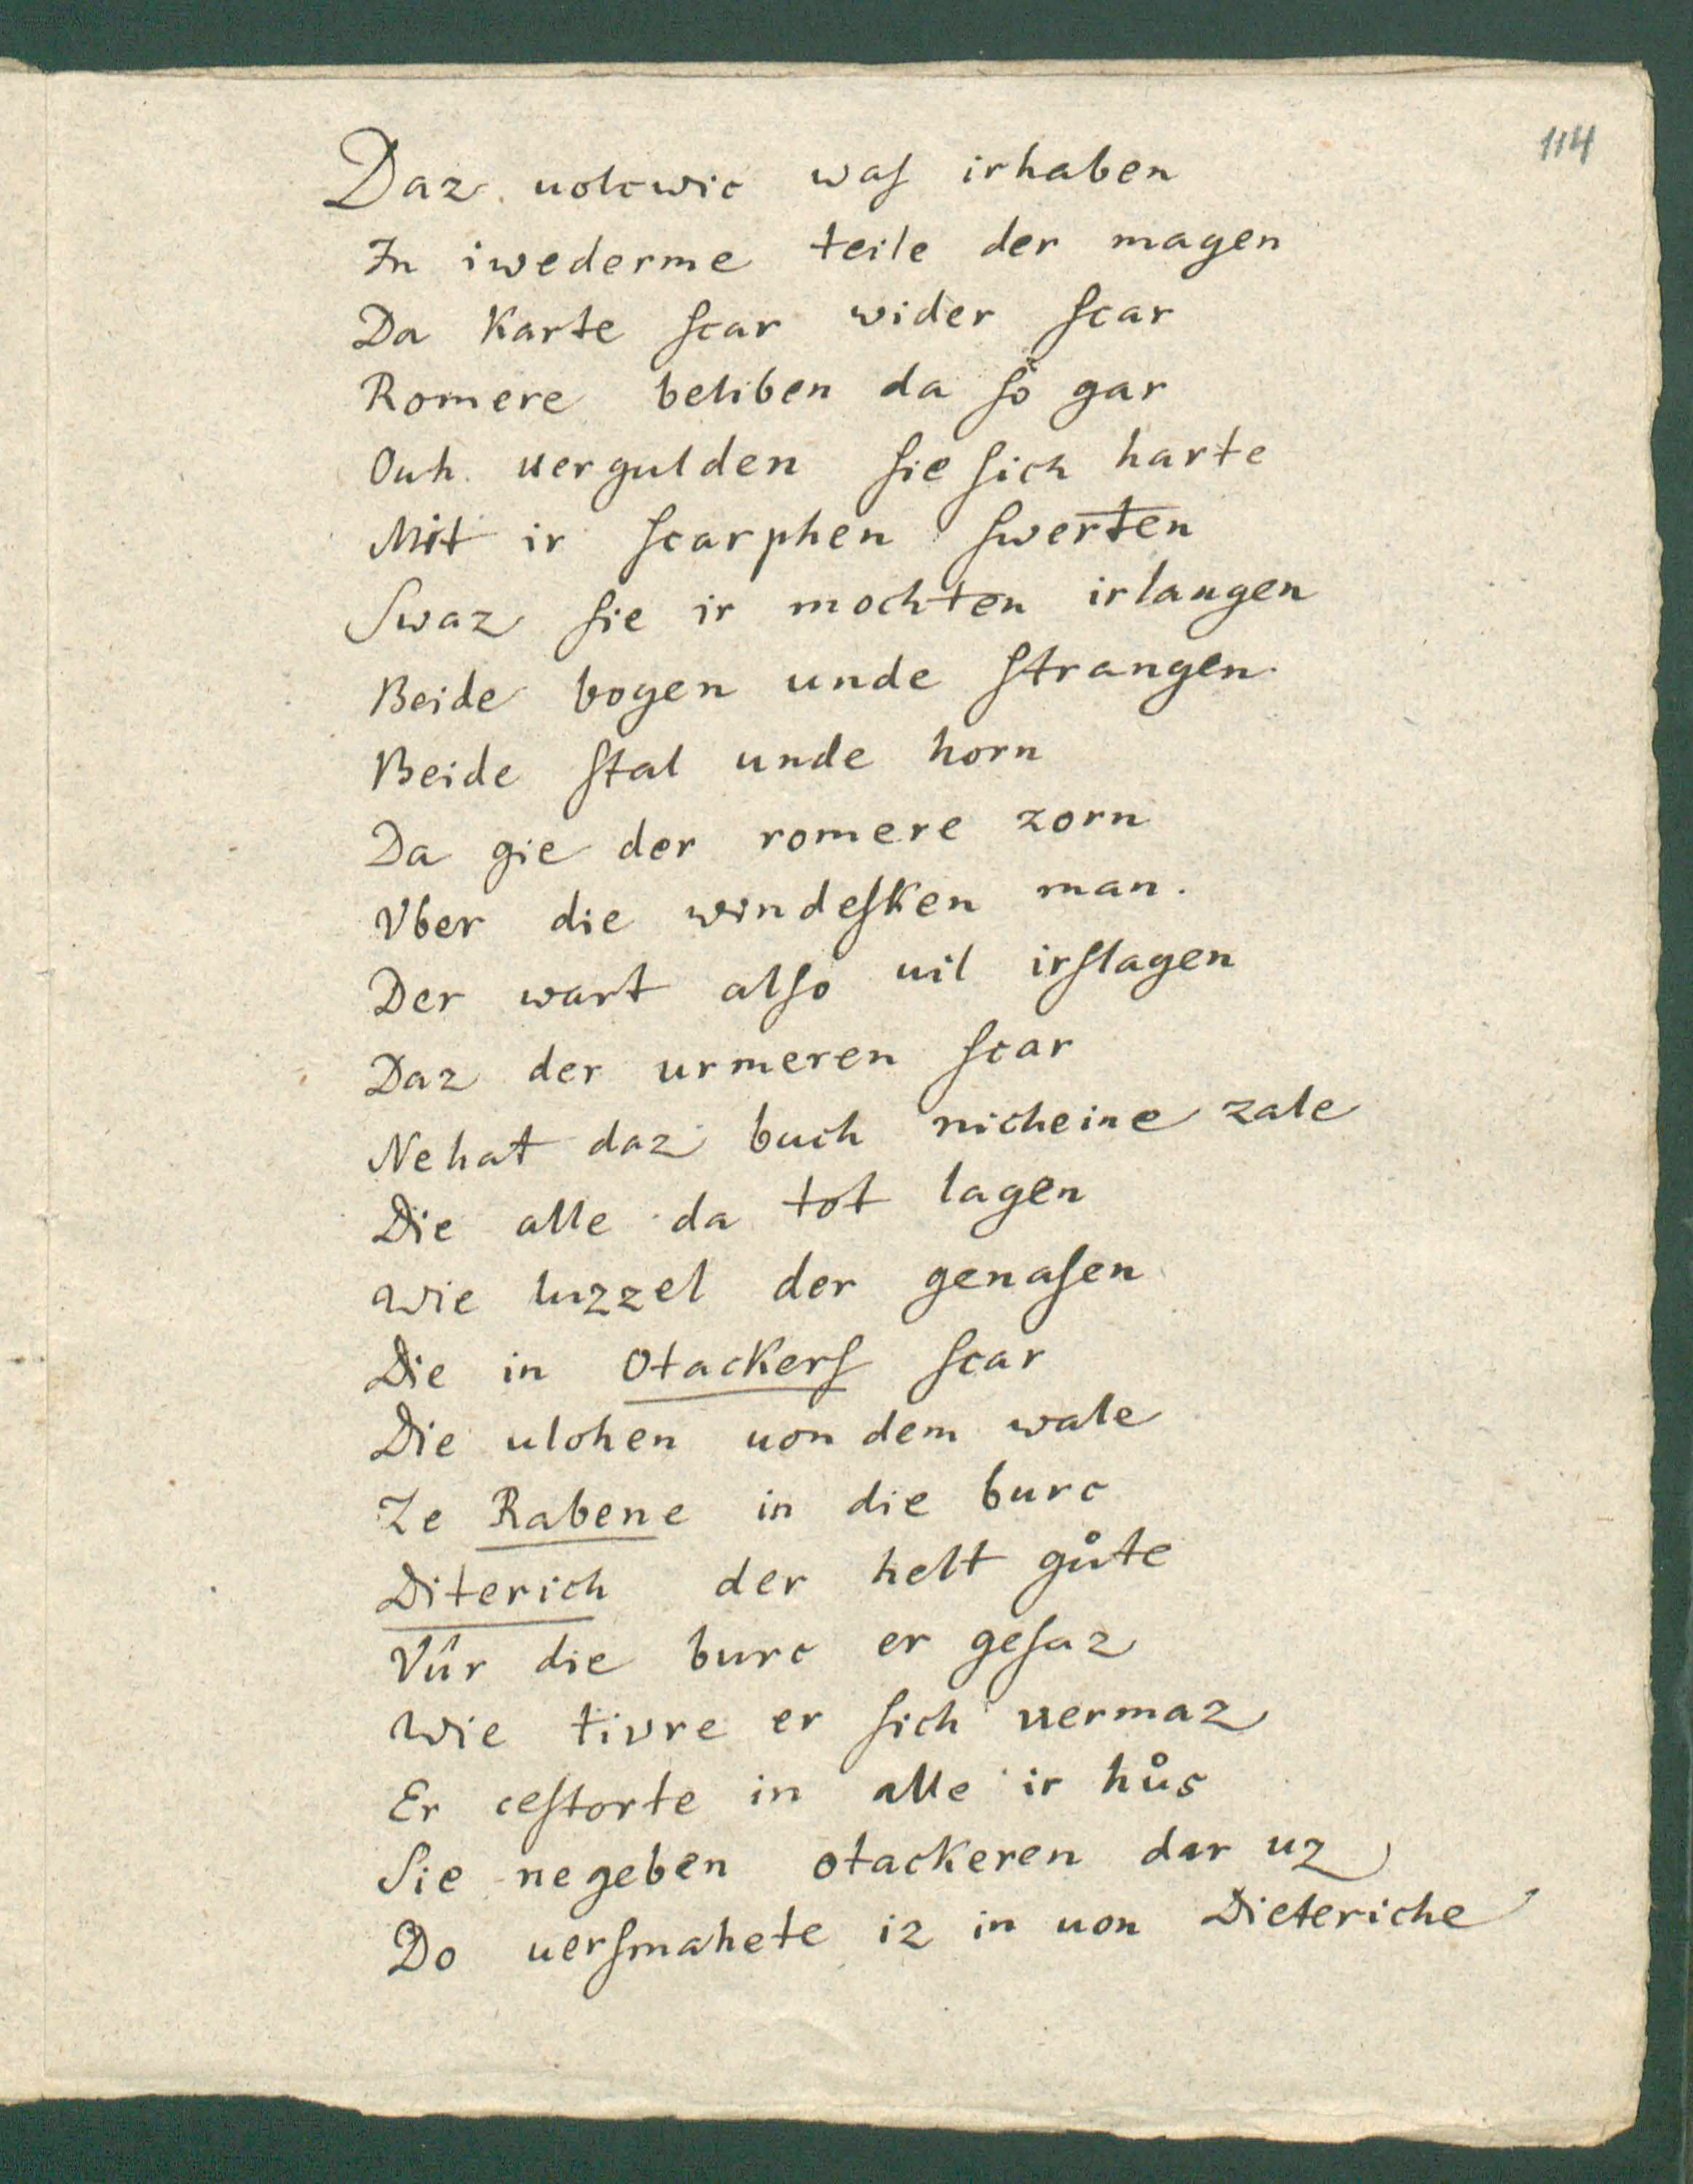 114
Daz uolcwic waſ irhaben
In iwederme teile der magen
Da Karte ſcar wider ſcar
Romere beliben da ſo gar
Ouh uergulden ſie ſich harte
Mit ir ſcarphen ſwerten
Swaz ſie ir mochten irlangen
Beide bogen unde ſtrangen
Beide ſtal unde horn
Da gie der romere zorn
Vber die windeſken man.
Der wart alſo uil irſlagen
Daz der urmeren ſcar
Nehat daz buch nicheine zale
Die alle da tot lagen
Wie luzzel der genaſen
Die in Otackerſ ſcar
Die ulohen uon dem wale
Ze Rabene in die burc
Diterich der helt gůte
Vûr die burc er geſaz
Wie tivre er ſich uermaz
Er ceſtorte in alle ir hůs
Sie negeben otackeren dar uz
Do uerſmahete iz in uon Dieteriche